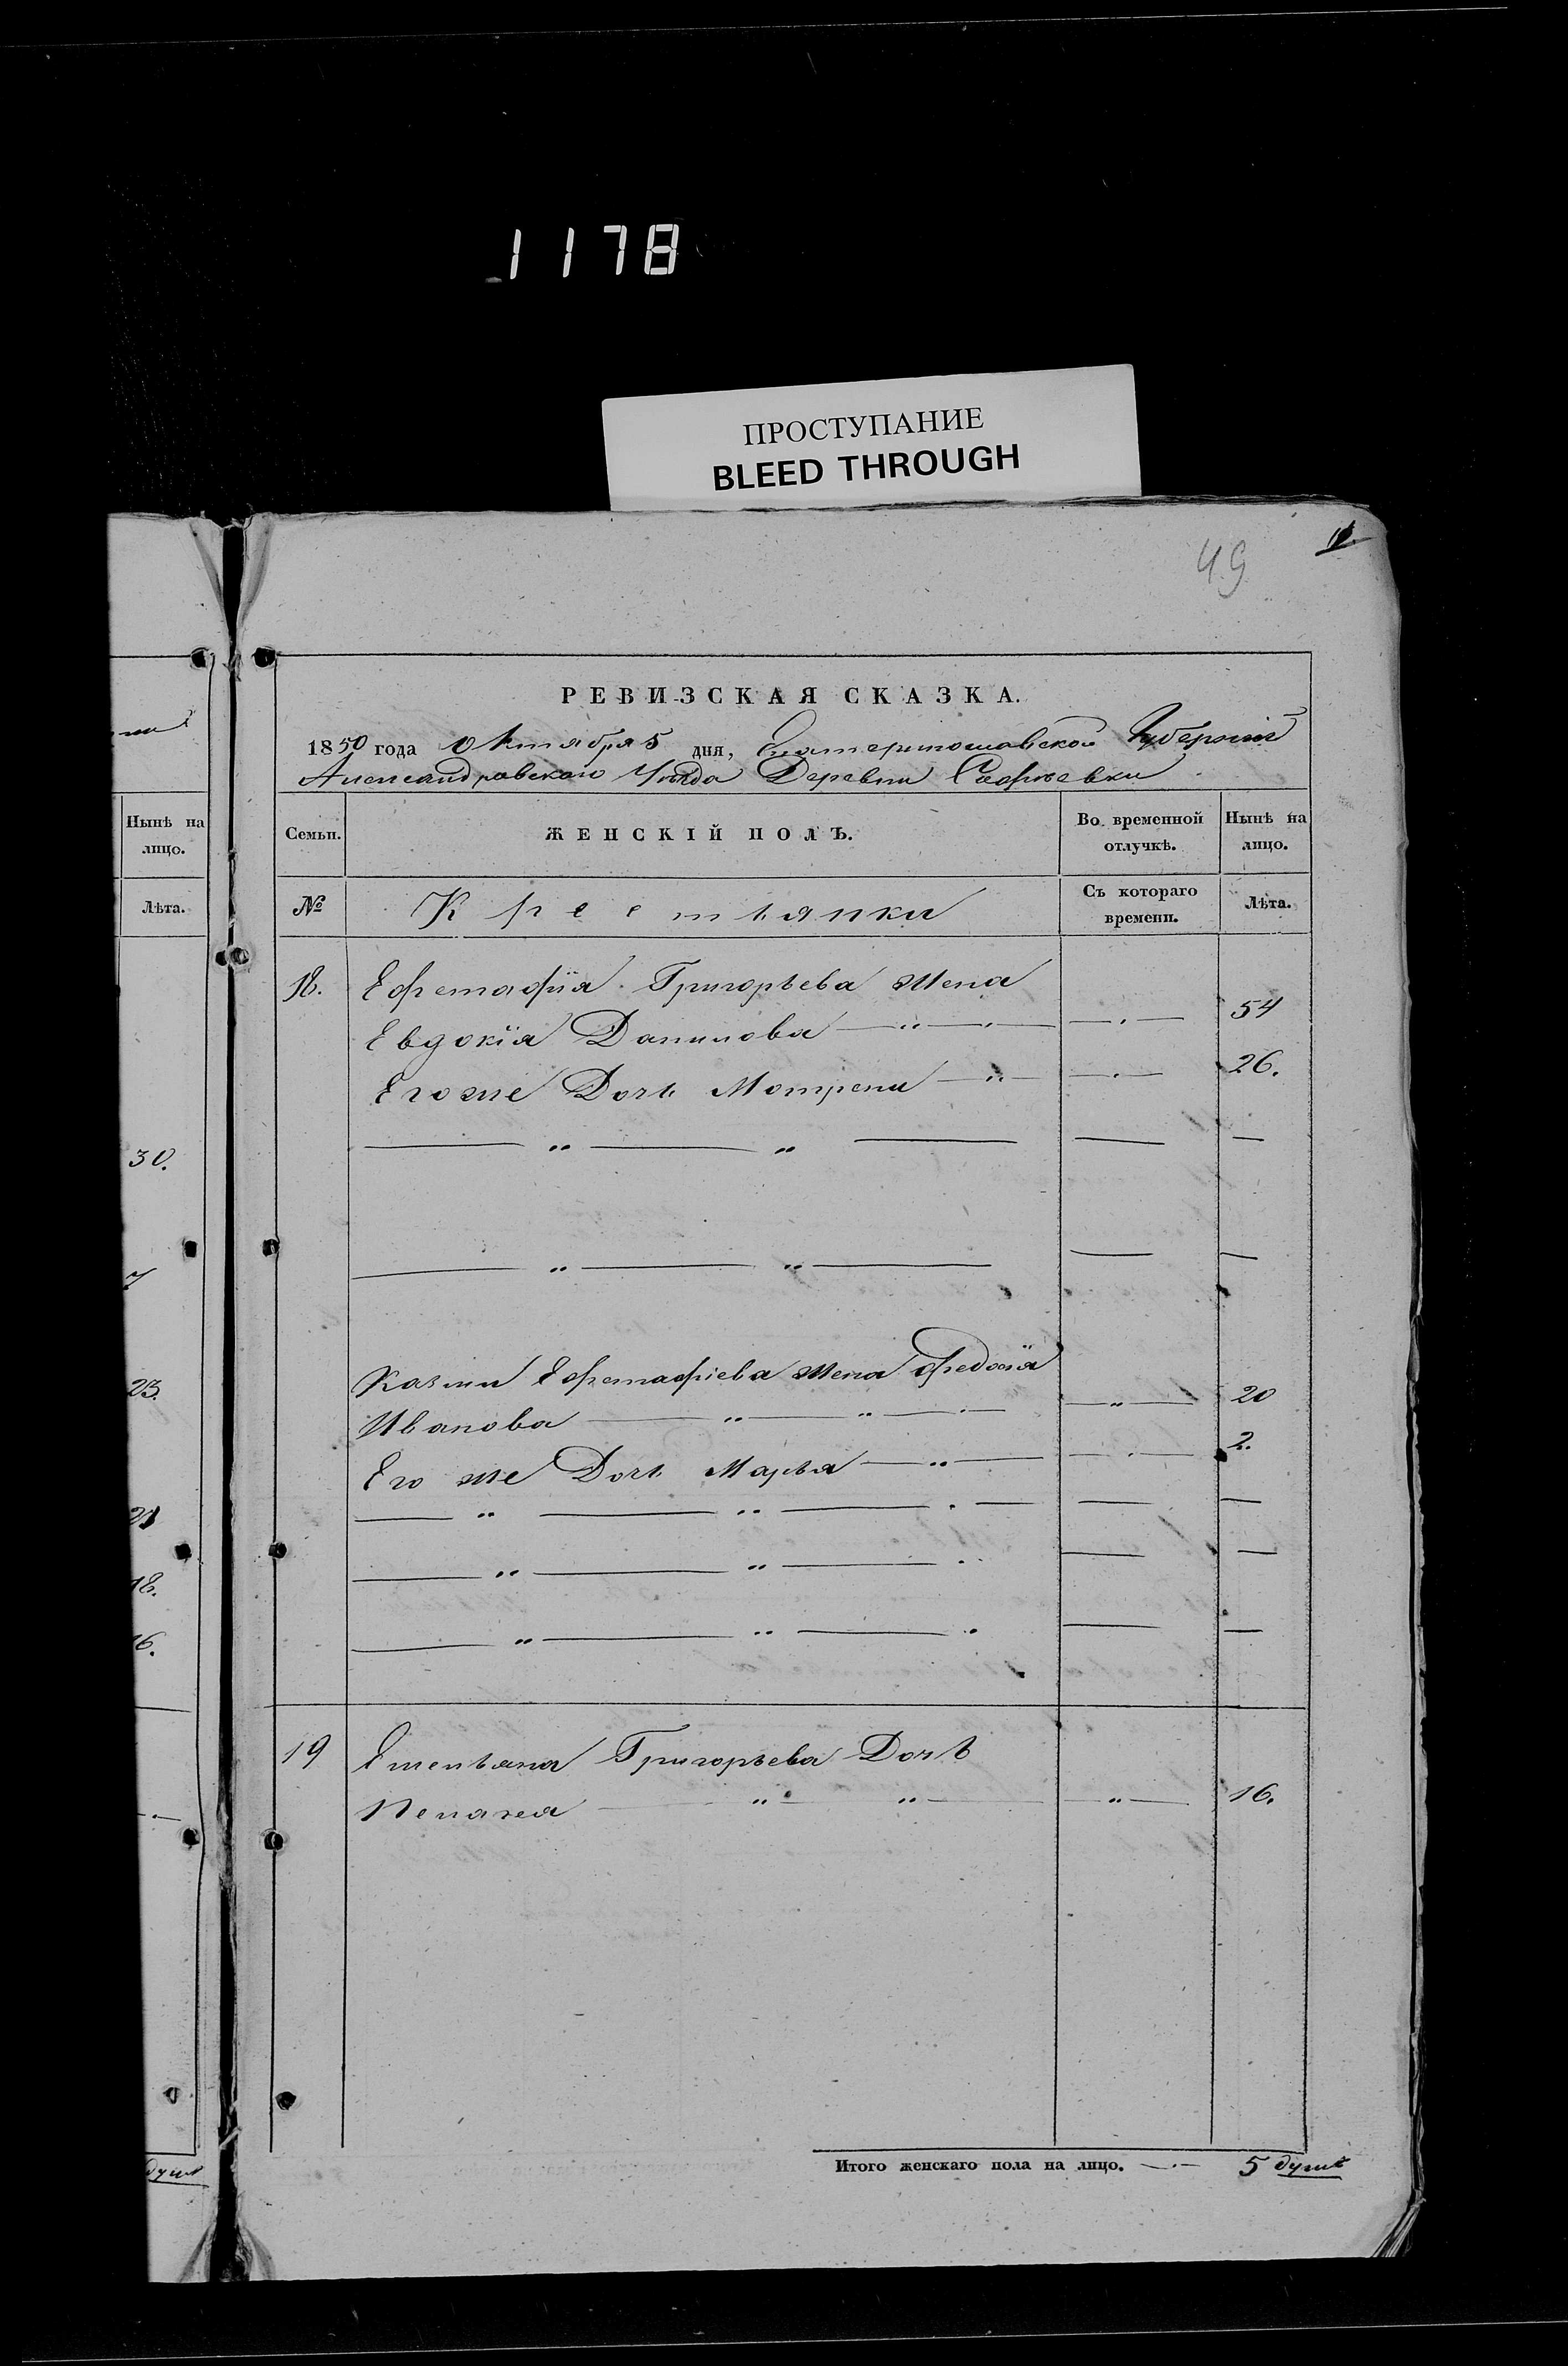 1178
ПРОСТУПАНИЕ
BLEED THROUGH
49
РЕВИЗСКАЯ СКАЗКА.
1850 года Октября 5 дня, Екатеринославской Губерніи
Александровскаго Уѣзда Деревни Софіевки
Нынѣ на лицо.
Семьи.
ЖЕНСКІЙ ПОЛЪ.
Во временной отлучкѣ.
Нынѣ на лицо.
Лѣта.
№
Крестьянки
Съ котораго времени.
Лѣта.
18. Ефстафія Григорьева жена
Евдокія Данилова 54
Егоже Дочь Мотрена 26.
30.
7
Казми Ефстафіева жена Федосія
23.
Иванова 20
Его же Дочь Марья 2.
21
18.
16.
19 Емельяна Григорьева Дочь
Пелагея 16.
Итого женскаго пола на лицо. 5 душъ
душъ